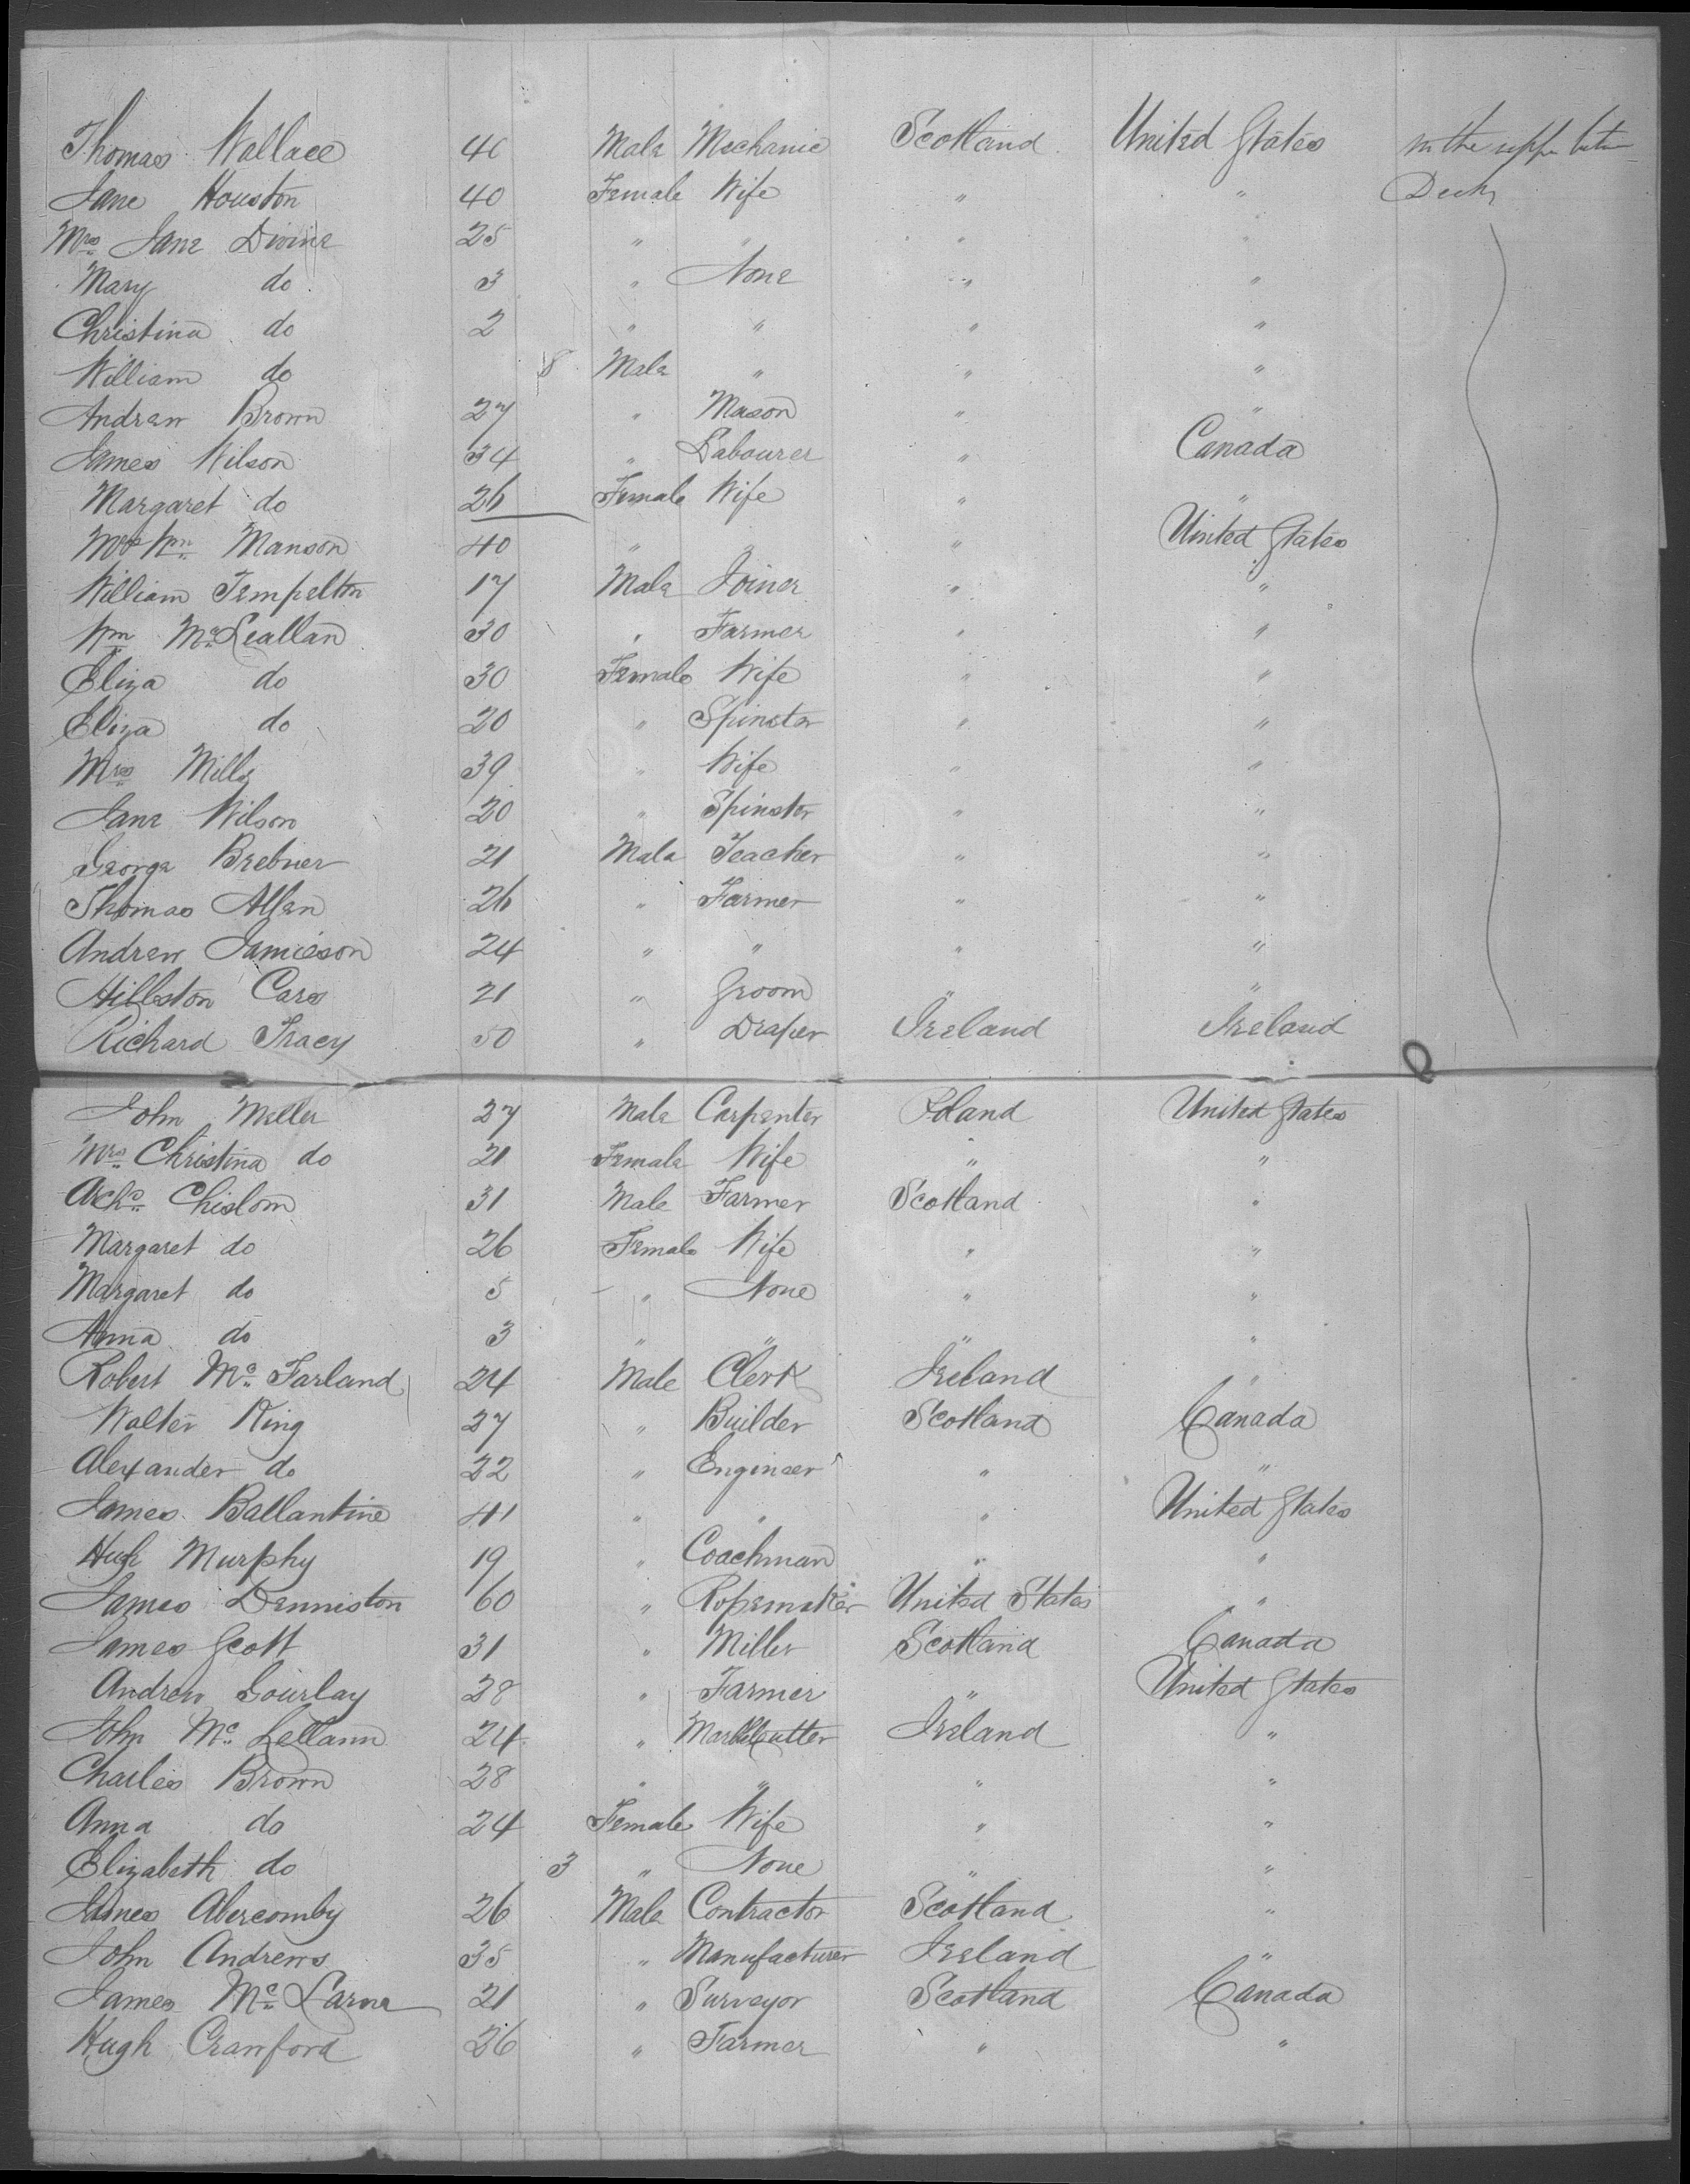 Thomas Wallace 40 Male Mechanic Scotland United States In the upper between
Jane Houston 40 Female Wife " " Decks
Mrs Jane Divine 25 " " " "
Mary do 3 " None " "
Christina do 2 " " " "
William do 8 Male " " "
Andrew Brown 27 " Mason " "
James Wilson 34 " Labourer " Canada
Margaret do 26 Female Wife " "
Mrs Wm Manson 40 " " " United States
William Tempelton 17 Male Joiner " "
Wm McLeallan 30 " Farmer " "
Eliza do 30 Female Wife " "
Eliza do 20 " Spinster " "
Mrs Mills 39 " Wife " "
Jane Wilson 20 " Spinster " "
George Brebner 21 Male Teacher " "
Thomas Allen 26 " Farmer " "
Andrew Jamieson 24 " " " "
Hillston Cars 21 " Groom " "
Richard Tracy 50 " Draper Ireland Ireland
John Meller 27 Male Carpenter Poland United States
Mrs Christina do 21 Female Wife " "
Archd Chislom 31 Male Farmer Scotland "
Margaret do 26 Female Wife " "
Margaret do 5 " None " "
Anna do 3 " " " "
Robert Mc Farland 24 Male Clerk Ireland "
Walter King 27 " Builder Scotland Canada
Alexander do 22 " Engineer " "
James Ballantine 41 " " " United States
Hugh Murphy 19 " Coachman " "
James Denniston 60 " Ropemaker United States "
James Scott 31 " Miller Scotland Canada
Andrew Gourlay 28 " Farmer " United States
John Mc Lellann 24 " Marblecutter Ireland "
Charles Brown 28 " " " "
Anna do 24 Female Wife " "
Elizabeth do 3 " None " "
James Abercomby 26 Male Contractor Scotland "
John Andrews 35 " Manufacturer Ireland "
James Mc Larne 21 " Surveyor Scotland Canada
Hugh Crawford 26 " Farmer " "